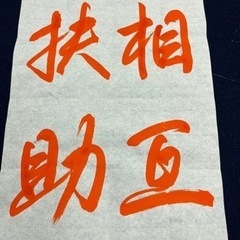 相互
扶助